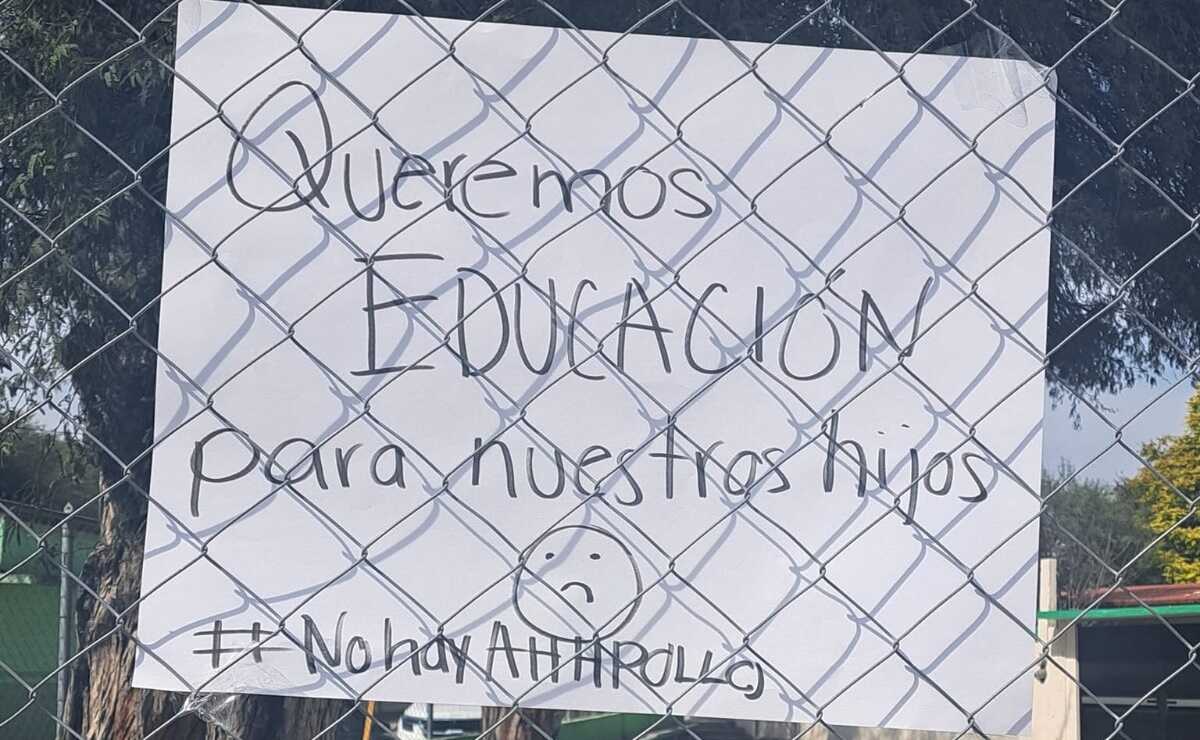 Queremos
EDUCACIÓN
para nuestros hijos
#No hay